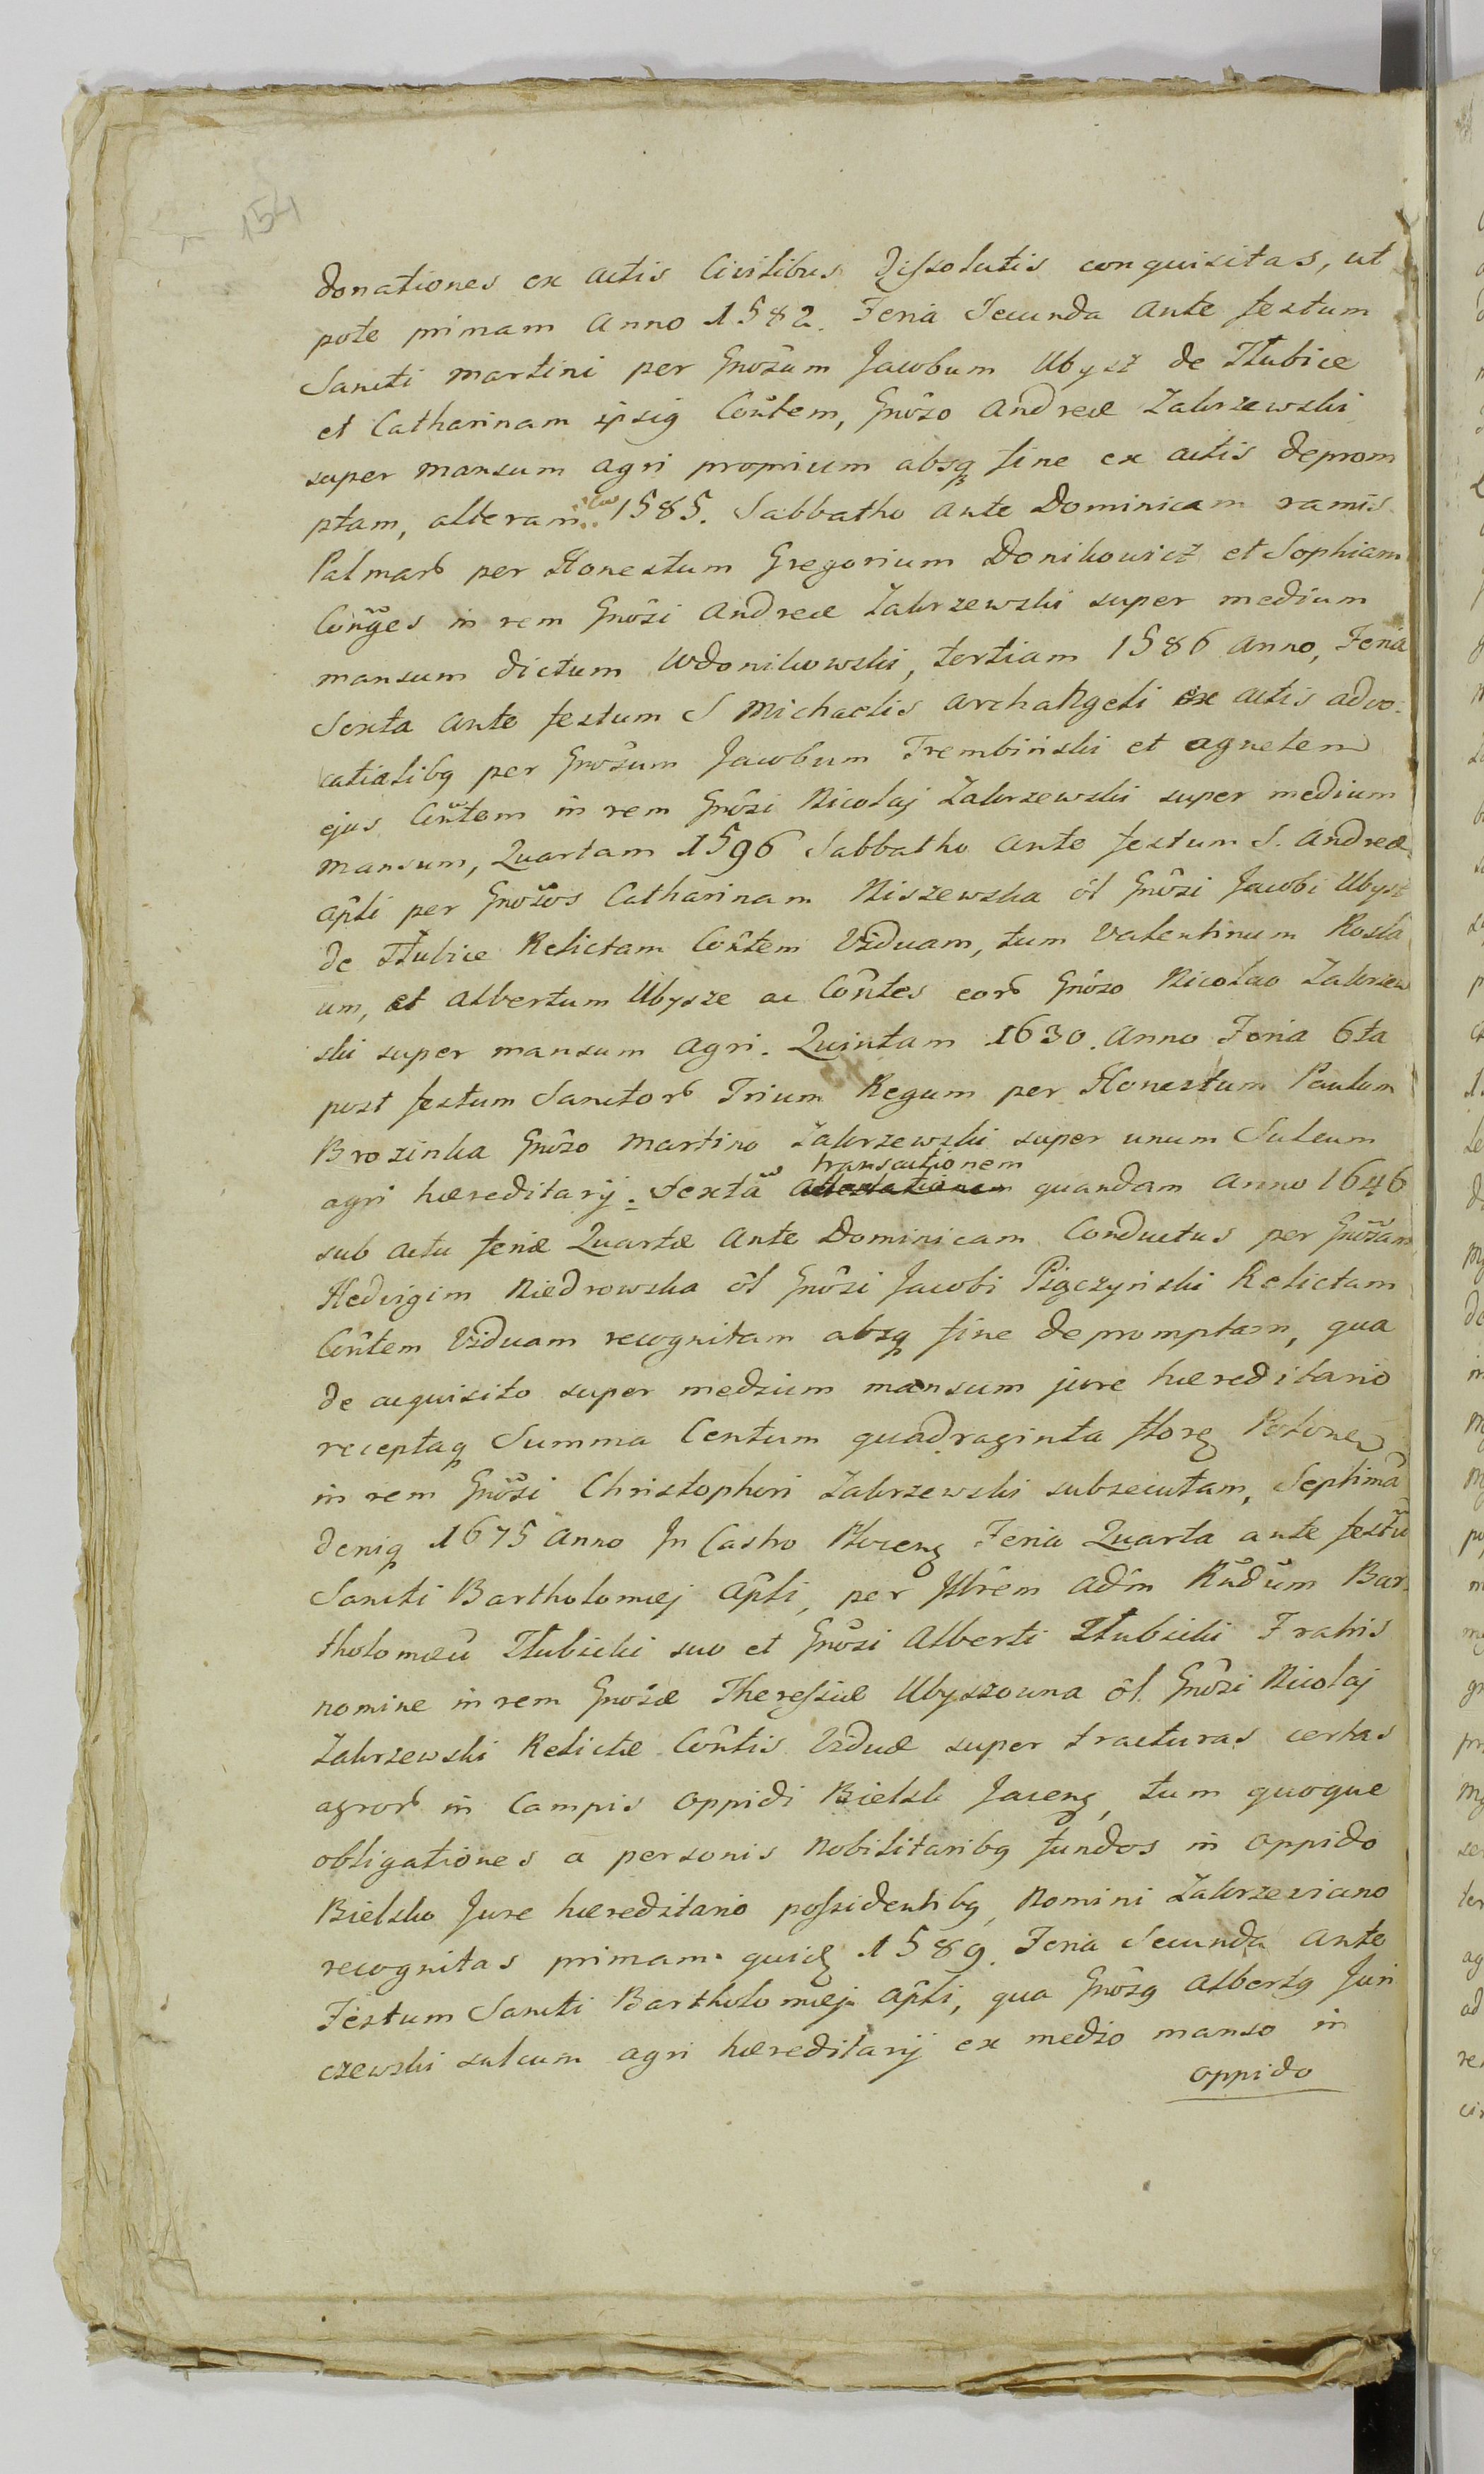 154
donationes ex actis Civilibus Dissolutis conquisitas, ut
pote primam Anno 1582. Feria Secunda Ante festum
Sancti Martini per Gnosum Jacobum Ubysz de Tłubice
et Catharinam ipsig Contem, Gnoso Andreæ Zakrzewski
super mansum agri proprium absq fine ex actis deprom
ptam, alteram 1585. Sabbatho Ante Dominicam ramis
Palmarb per Honestum Gregorium Donikowicz et Sophiam
Conges in rem Gnosi Andreæ Zakrzewski super medium
mansum dictum Wdonikowski, tertiam 1586 Anno, Feria
Sexta Ante festum S Michaelis Archangeli ex actis advo:
catialibq per Gnosum Jacobum Trembiński et Agnetem
ejus Contem in rem Gnosi Nicolaj Zakrzewski super medium
mansum, Quartam 1596 Sabbatho Ante festum S. Andreæ
Apli per Gnosos Catharinam Niszewska ol Gnosi Jacobi Ubysz
de Tłubice Relictam Contem Viduam, tum Valentinum Rosla
um, et Albertum Ubysze ac Contes eorb Gnoso Nicolao Zakrzew
ski super mansum Agri. Quintam 1630. Anno Feria 6ta
post festum Sanctorb Trium Regum per Honestum Paulum
Brozinka Gnoso Martino Zakrzewski super unum Sulcum
transactionem
agri hæreditarij. Sexta quandam Anno 1646
sub actu feriæ Quartæ Ante Dominicam Conductus per Gnosam
Hedvigim Niedrowska ol Gnosi Jacobi Pigczyński Relictam
Contem Viduam recognitam absq fine depromptam, qua
de acquisito super medium mansum jure hæreditario
receptaq Summa Centum quadraginta florq Polone
in rem Gnosi Christophori Zakrzewski subsecutam, Septima
deniq 1675 Anno In Castro Plocenq Feria Quarta ante festu
Sancti Bartholomæj Apli, per Illrem Adm Rndum Bar
tholomæu Tłubicki suo et Gnosi Alberti Tłubicki Fratris
nomine in rem Gnosæ Theressiæ Ubyszowna ol Gnosi Nicolaj
Zakrzewski Relictæ Contis Viduæ super tracturas certas
agrorb in Campis Oppidi Bielsk Jacenq, tum quoque
obligationes a personis Nobilitaribq fundos in Oppido
Bielsko Jure hæreditario possidentibq, Nomini Zakrzeviano
recognitas primam quidq 1589. Feria Secunda Ante
Festum Sancti Bartholomæj Apli, qua Gnosq Albertq Juri
czewski sulcum agri hæreditarij ex medio manso in
oppido